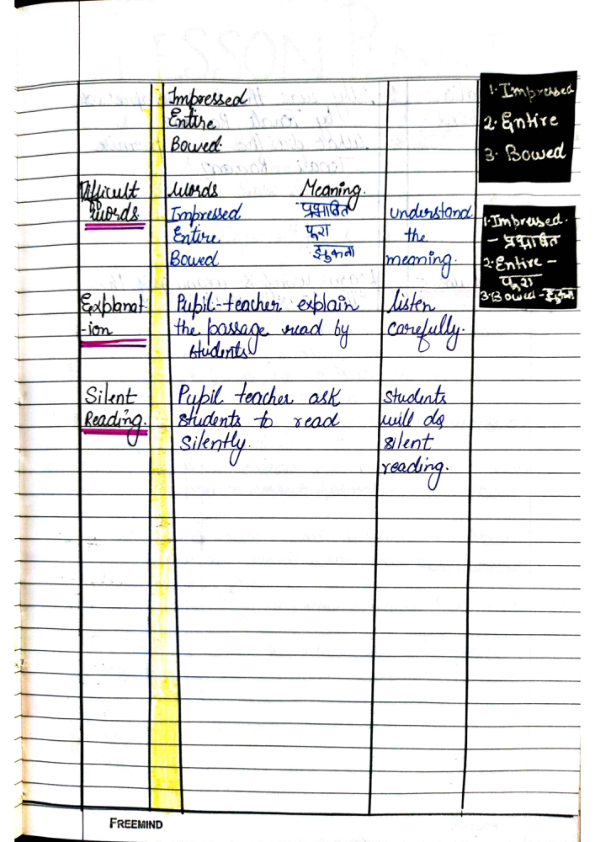 Impressed
Entire
Bowed.
1. Impressed
2. Entire
3. Bowed
Difficult Words
Words Meaning.
Impressed प्रभावित
Entire. पूरा
Bowed झुकना
understand
the
meaning.
1. Impressed.
- प्रभावित
2. Entire -
पूरा
3. Bowed - झुकना
Explanat
-ion
Pupil-teacher explain
the passage read by
students
listen
carefully.
Silent
Reading.
Pupil teacher ask
students to read
Silently.
Students
will do
silent
reading.
FREEMIND